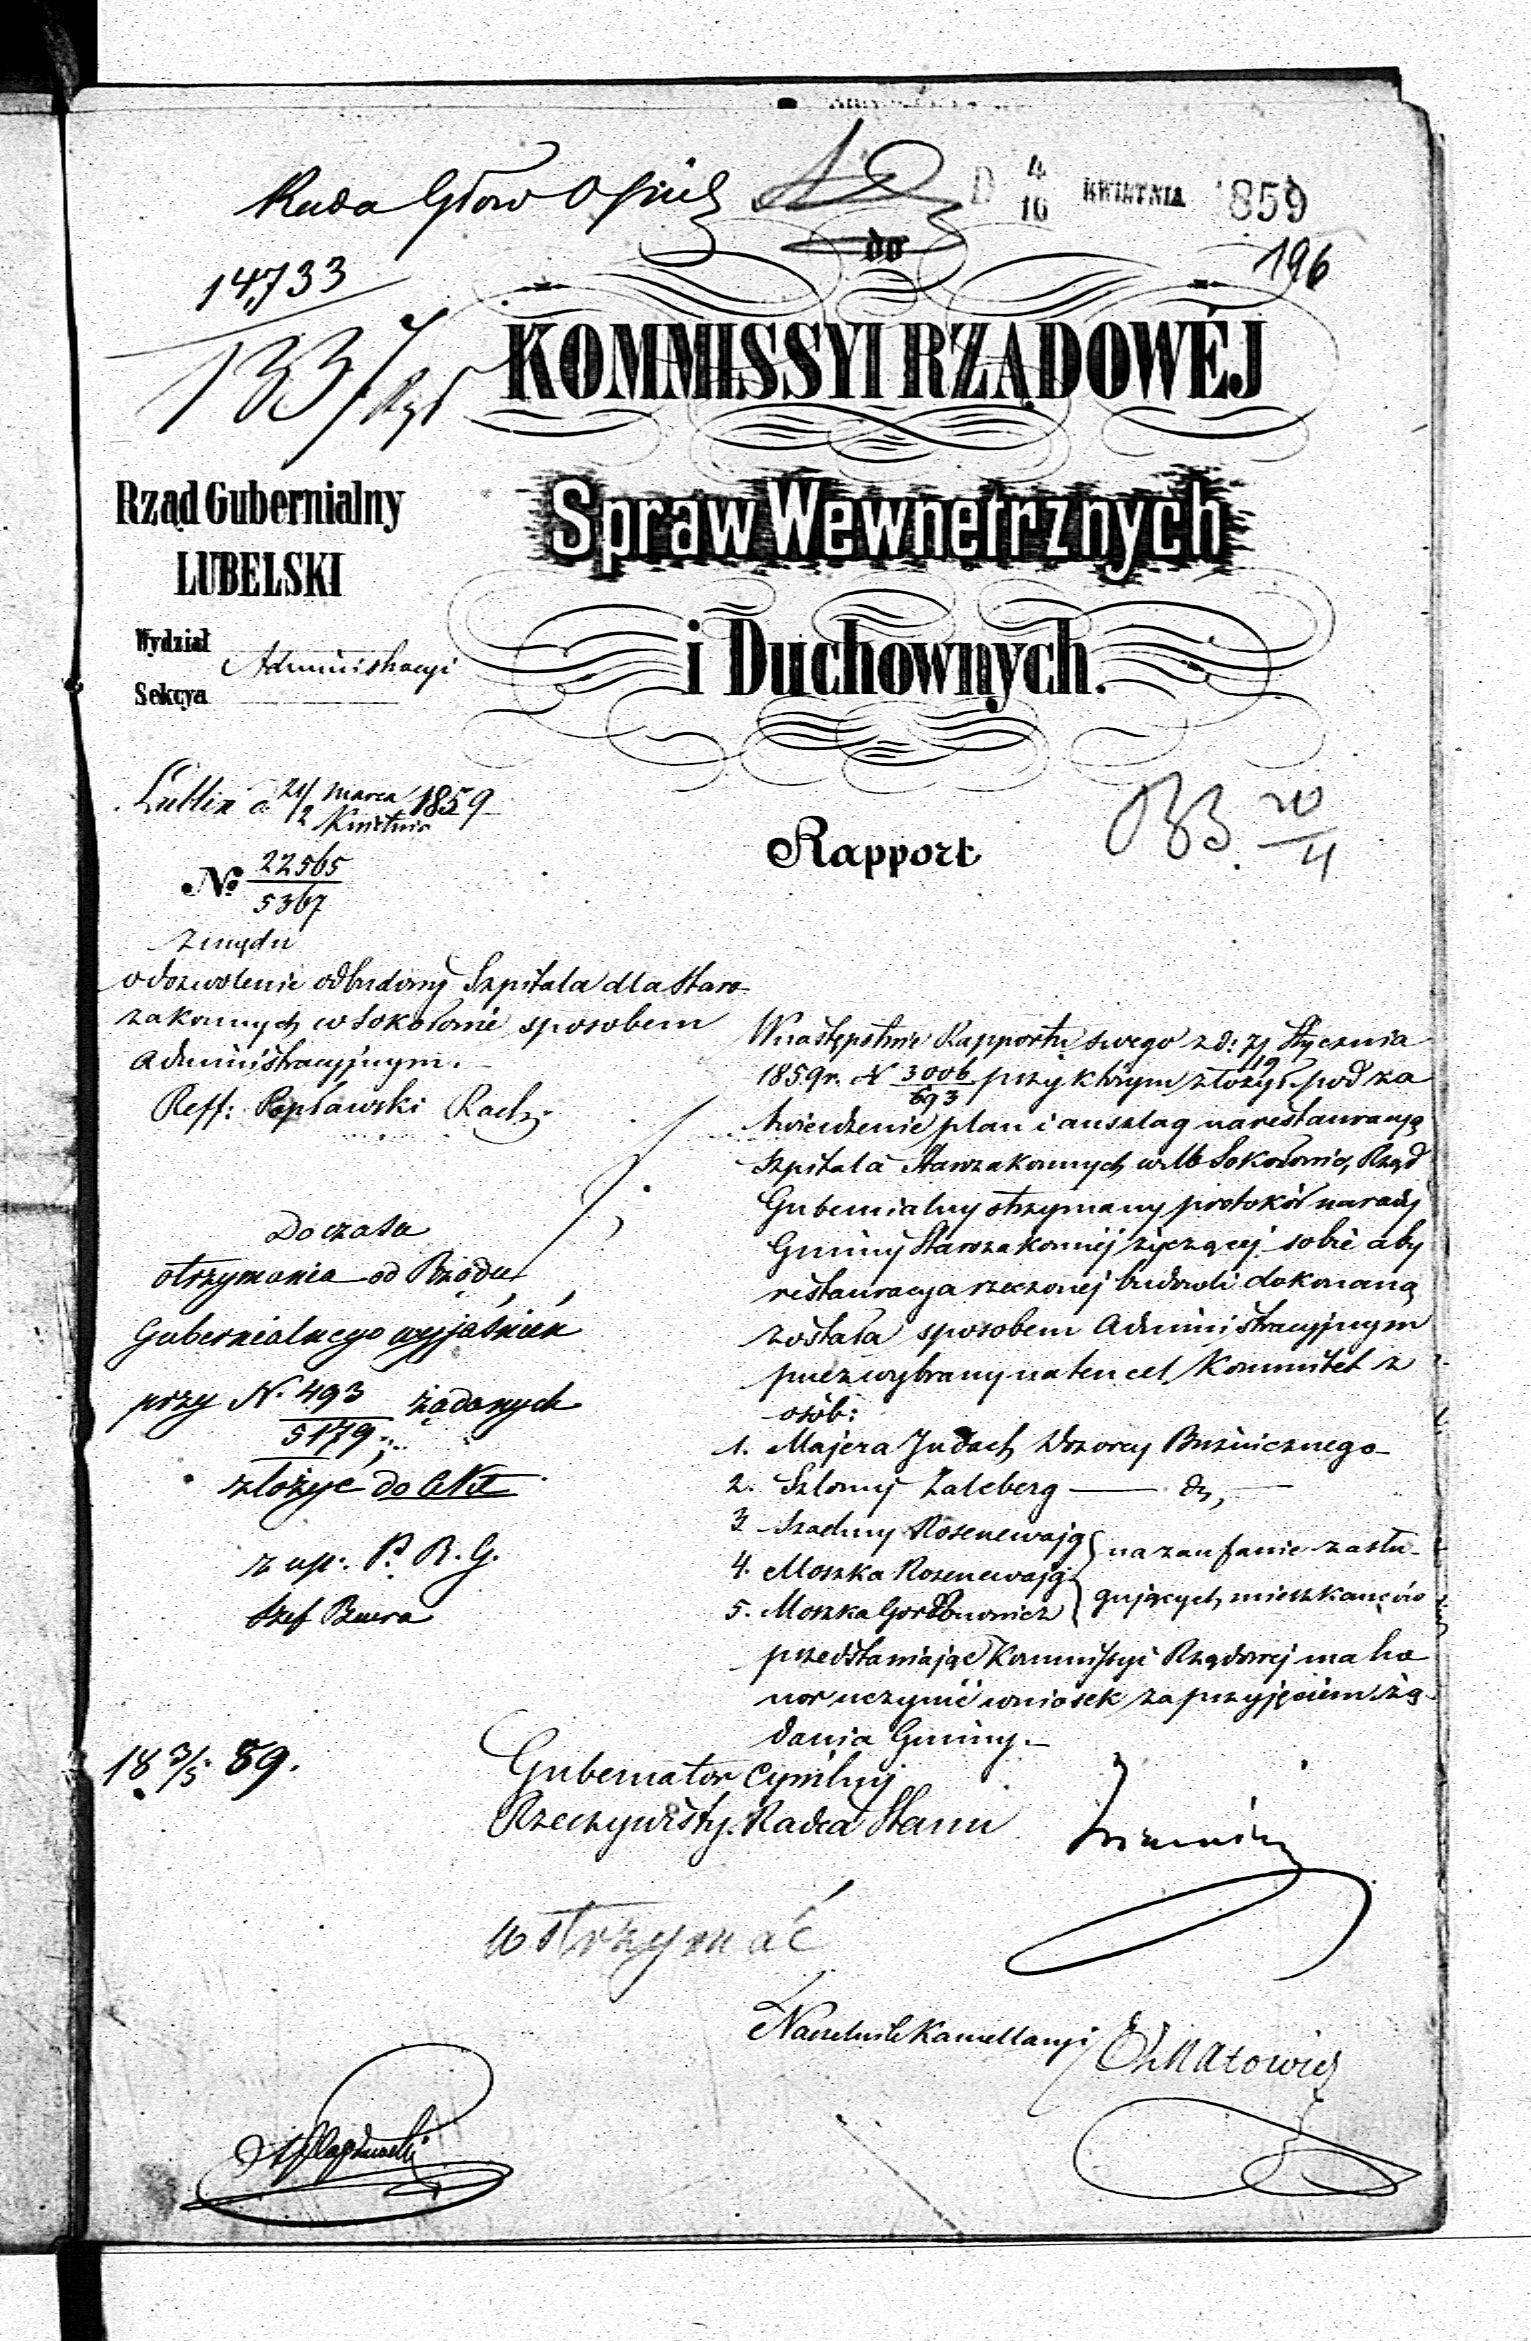 Rada Głów Opiek
D 4/16 KWIETNIA 1859
196
14733
1337
do
KOMMISSYI RZĄDOWÉJ
Spraw Wewnetrznych
i Duchownych.
Rząd Gubernialny
LUBELSKI
Wydział Administracyi
Sekcya
Lublin d. 21/2 Marca/Kwietnia 1859
Rapport
20/4
№ 22565/5367
z urzędu
o dozwolenie odbudowy Szpitala dla Staro-
zakonnych w Sokołowie sposobem
administracyjnym.
Reff: Popławski Radz.
W następstwie Rapportu swego z d: 7/19 Stycznia
1859 r. N 3006/693 przy którym złożył pod za
twierdzenie plan i anszlag na restauracyą
Szpitala Starozakonnych w M Sokołowie, Rząd
Gubernialny otrzymany protokół narady
Gminy Starozakonnéj życzącej sobie aby
restauracya rzeczonej budowli dokonaną
została sposobem Administracyjnym
przez wybrany na ten cel Kommitet z
osób:
1. Majera Judach Dozorcy Bużnicznego
2. Szlomy Zaleberg — do —
3. Szachny Rosenewajg
4. Moszka Rosenewajg
5. Moszka
na zaufanie zasłu-
gujących mieszkańców
przedstawiając Kommissyi Rządowej ma ho
nor uczynić wniosek za przyjęciem żą-
dania Gminy.
Do czasu
otrzymania od Rządu
Gubernialnego wyjaśnień
przy N. 493/5179 żądanych
złożyć do Akt
z up: P. R. G.
Szef Biura
18 3/5 59.
Gubernator Cywilny
Rzeczywisty Radca Stanu
wstrzymać
Naczelnik Kancellaryi